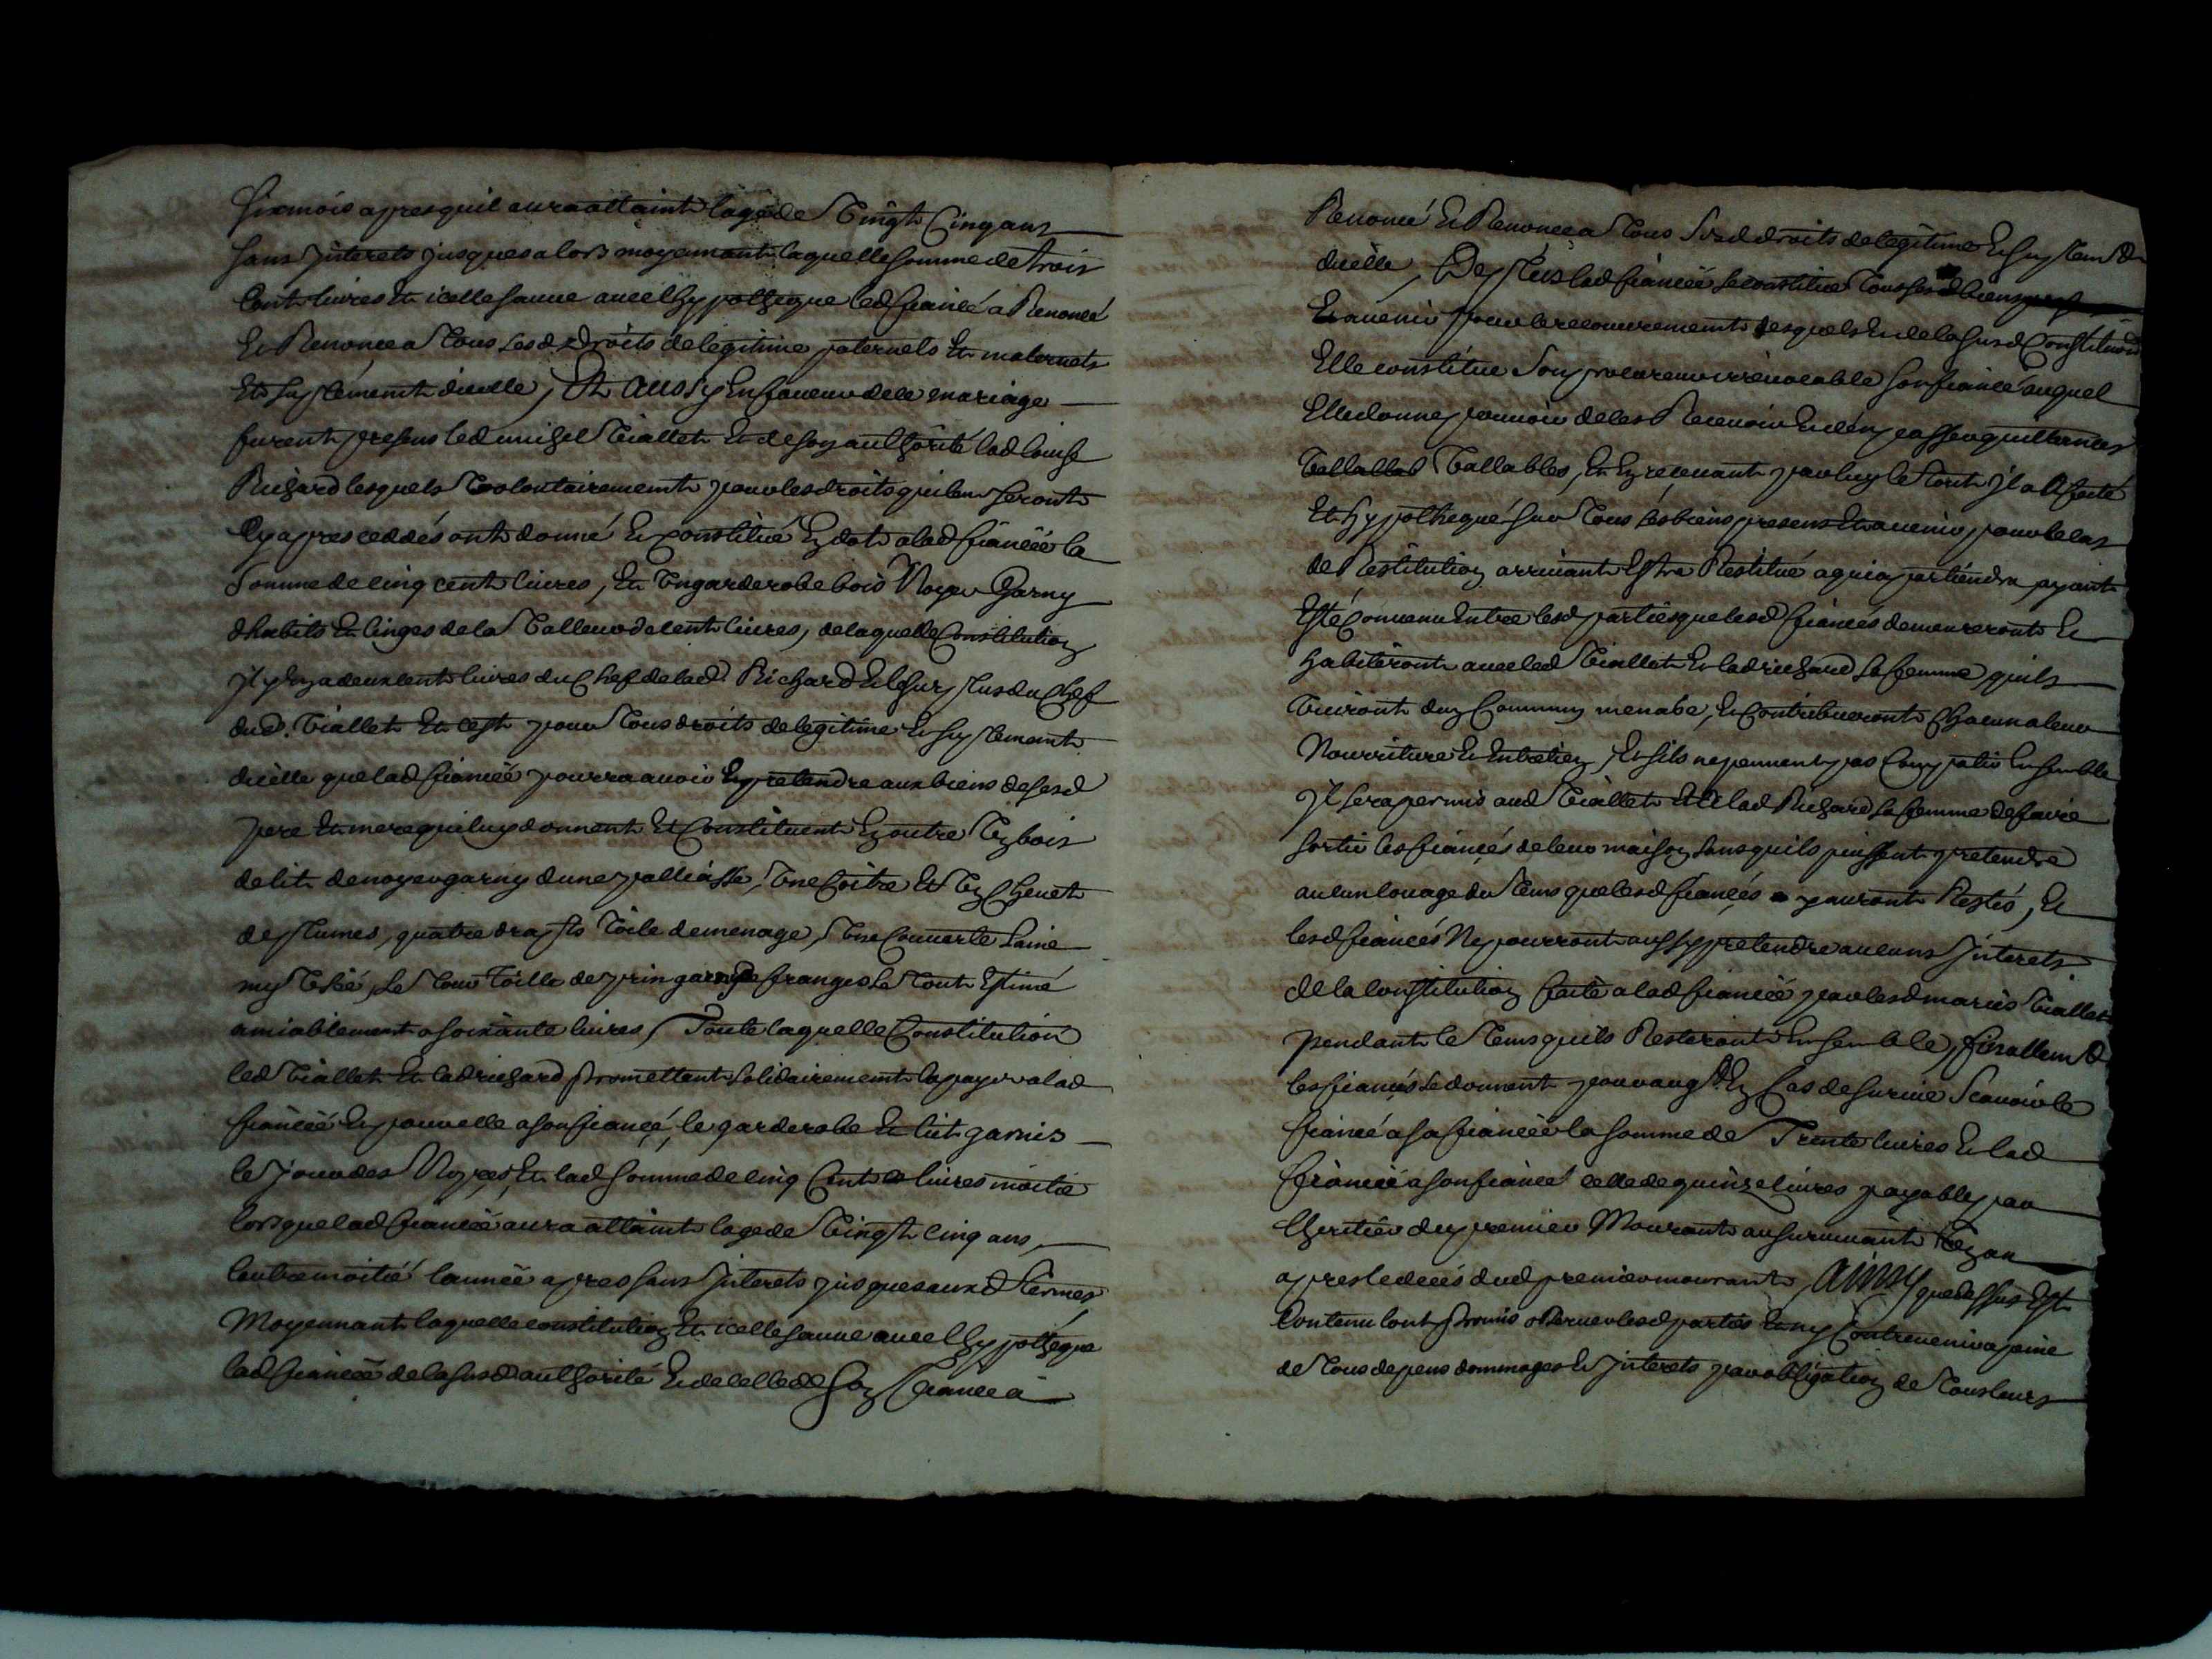 six mois apres quil aura attaint lage de vingt cinq ans
sans jnterets jusques alors moyennant laquelle somme de trois
cents livres et icelle sauve avec lhyppotheque led fiancé a Renoncé
Et Renonce a tous sesd droits de legitime paternels et maternels
et suplement dicelle, Et aussy En faveur de ce mariage
furent presens led michel viallet et de son authorité lad louise
Richard lesquels volontairement pour les droits quileur seront
cy apres ceddés ont donné Et constitué En dot a lad fiancéé la
somme de cinq cent livres, Et Un garderobe bois Noyer Garny
dhabits et linges de la valleur de cent livres, de laquelle Constitution
jl y En a deux cent livres du Chef de lad Richard Et le surplus du Chef
dud. viallet Et cest pour tous droits de legitime Et suplement
dicelle que lad fiancéé pourra avoir Et pretendre aux biens de sesd
pere et mere qui luy donnent Et Constituent En outre Un bois
de lit de noyer garny dune palliasse, Une Coitre Et Un Chevet
de plumes, quatre draps toile de menage, Une Couverte Laine
my Usé, Le tour toille de prin garny de franges Le tout Estimé
amiablement a soixante livres, Toute laquelle Constitution
led viallet Et lad richard promettent solidairement la payer a lad
fiancéé Et pour elle a son fiancé, le garderobe Et lit garnis
le jour des Nopces, Et lad somme de cinq Cent livres moitié
lorsque lad fiancéé aura attaint lage de vingt cinq ans,
lautre moitié lannéé apres sans jnterets jusques auxd termes
Moyennant laquelle constitution Et icelle sauve avec lhyppotheque
lad fiancéé de lasusd authorité Et de celle de son fiancé a
Renoncé Et Renonce a tous susd droits de legitime Et suplemt
dicelle, De plus lad fiancéé se constitue tous sesd biens
Et avenir pour le recouvrement desquels Et de la susd Constitution
Elle constitue son procureur irrévocable son fiancé auquel
Elle donne pouvoir de les Recevoir Et den passer quittances
vallables, Et En recevant par luy le tout jl a affecté
Et hyppothequé sur tous ses biens presens Et avenir pour le cas
de Restitution arrivant Estre Restitué a qui apartiendra ayant
Esté Convenu Entre lesd parties que lesd fiancés demeureront Et
habiteront avec led viallet Et lad richard sa femme, quils
vivront dun Commun menage, Et Contribueront Chacun a leur
Nourriture Et Entretien, Et sils ne peuvent pas Compatir Ensemble
jl sera permis aud viallet Et a lad Richard sa femme de faire
sortir les fiancés de leur maison sans quils puissent pretendre
aucun louage du tems que lesd fiancés y auront Restés, Et
lesd fiancés Ne pourront aussy pretendre aucuns jnterets
de la Constitution faite a lad fiancéé par lesd mariés viallet
pendant le tems quils Resteront Ensemble, finallemt
les fiancés se donnent pour augt En Cas de survie Scavoir le
fiancé a sa fiancéé la somme de Trente livres Et lad
fiancéé a son fiancé celle de quinze livres payable par
lheritier du premier Mourant au survivant Un an
apres le decés dud premier mourant, Ainsy que dessus Est
Contenu lont promis observer lesd parties Et ny Contrevenir a peine
de tous depens dommages Et jnterets par obligation de tous leurs